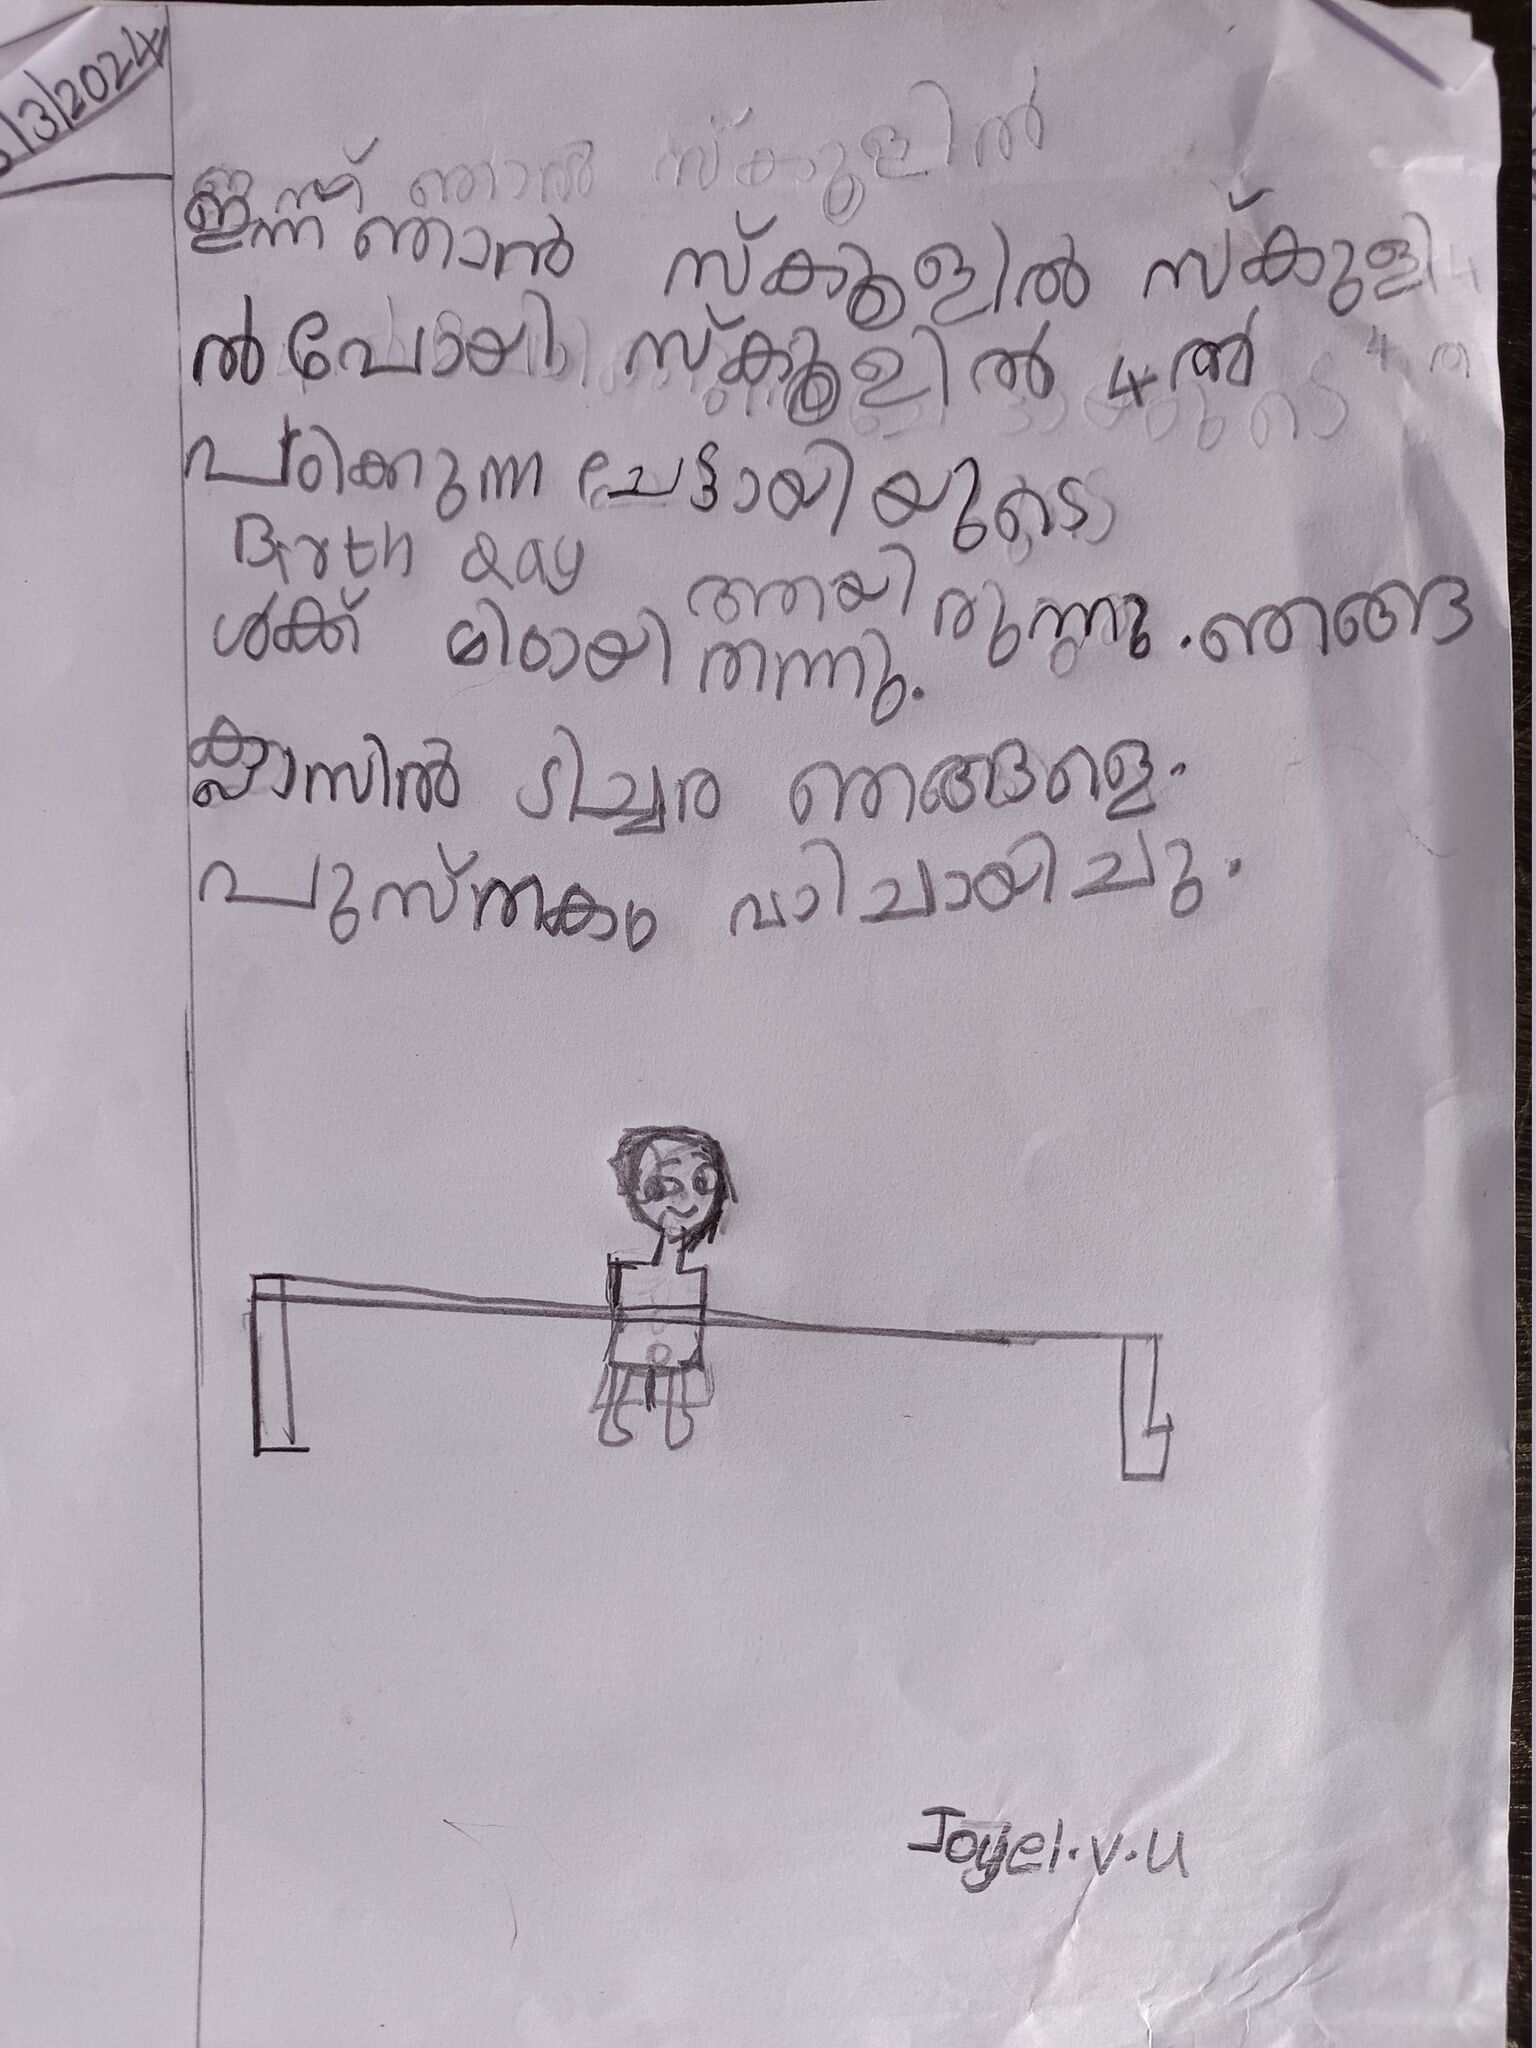 /3/2024
ഇന്ന് ഞാൻ സ്കൂളിൽ
ഇന്ന് ഞാൻ സ്കൂളിൽ സ്കുളി
ൽ പോയി സ്കൂളിൽ 4ൽ
പഠിക്കുന്ന ചേട്ടായിയുടെ
Birth day ആയിരുന്നു. ഞങ്ങ
ൾക്ക് മിഠായി തന്നു.
ക്ലാസിൽ ടിച്ചര ഞങ്ങളെ.
പുസ്തകം വാിചായിചു.
Joyel.V.U